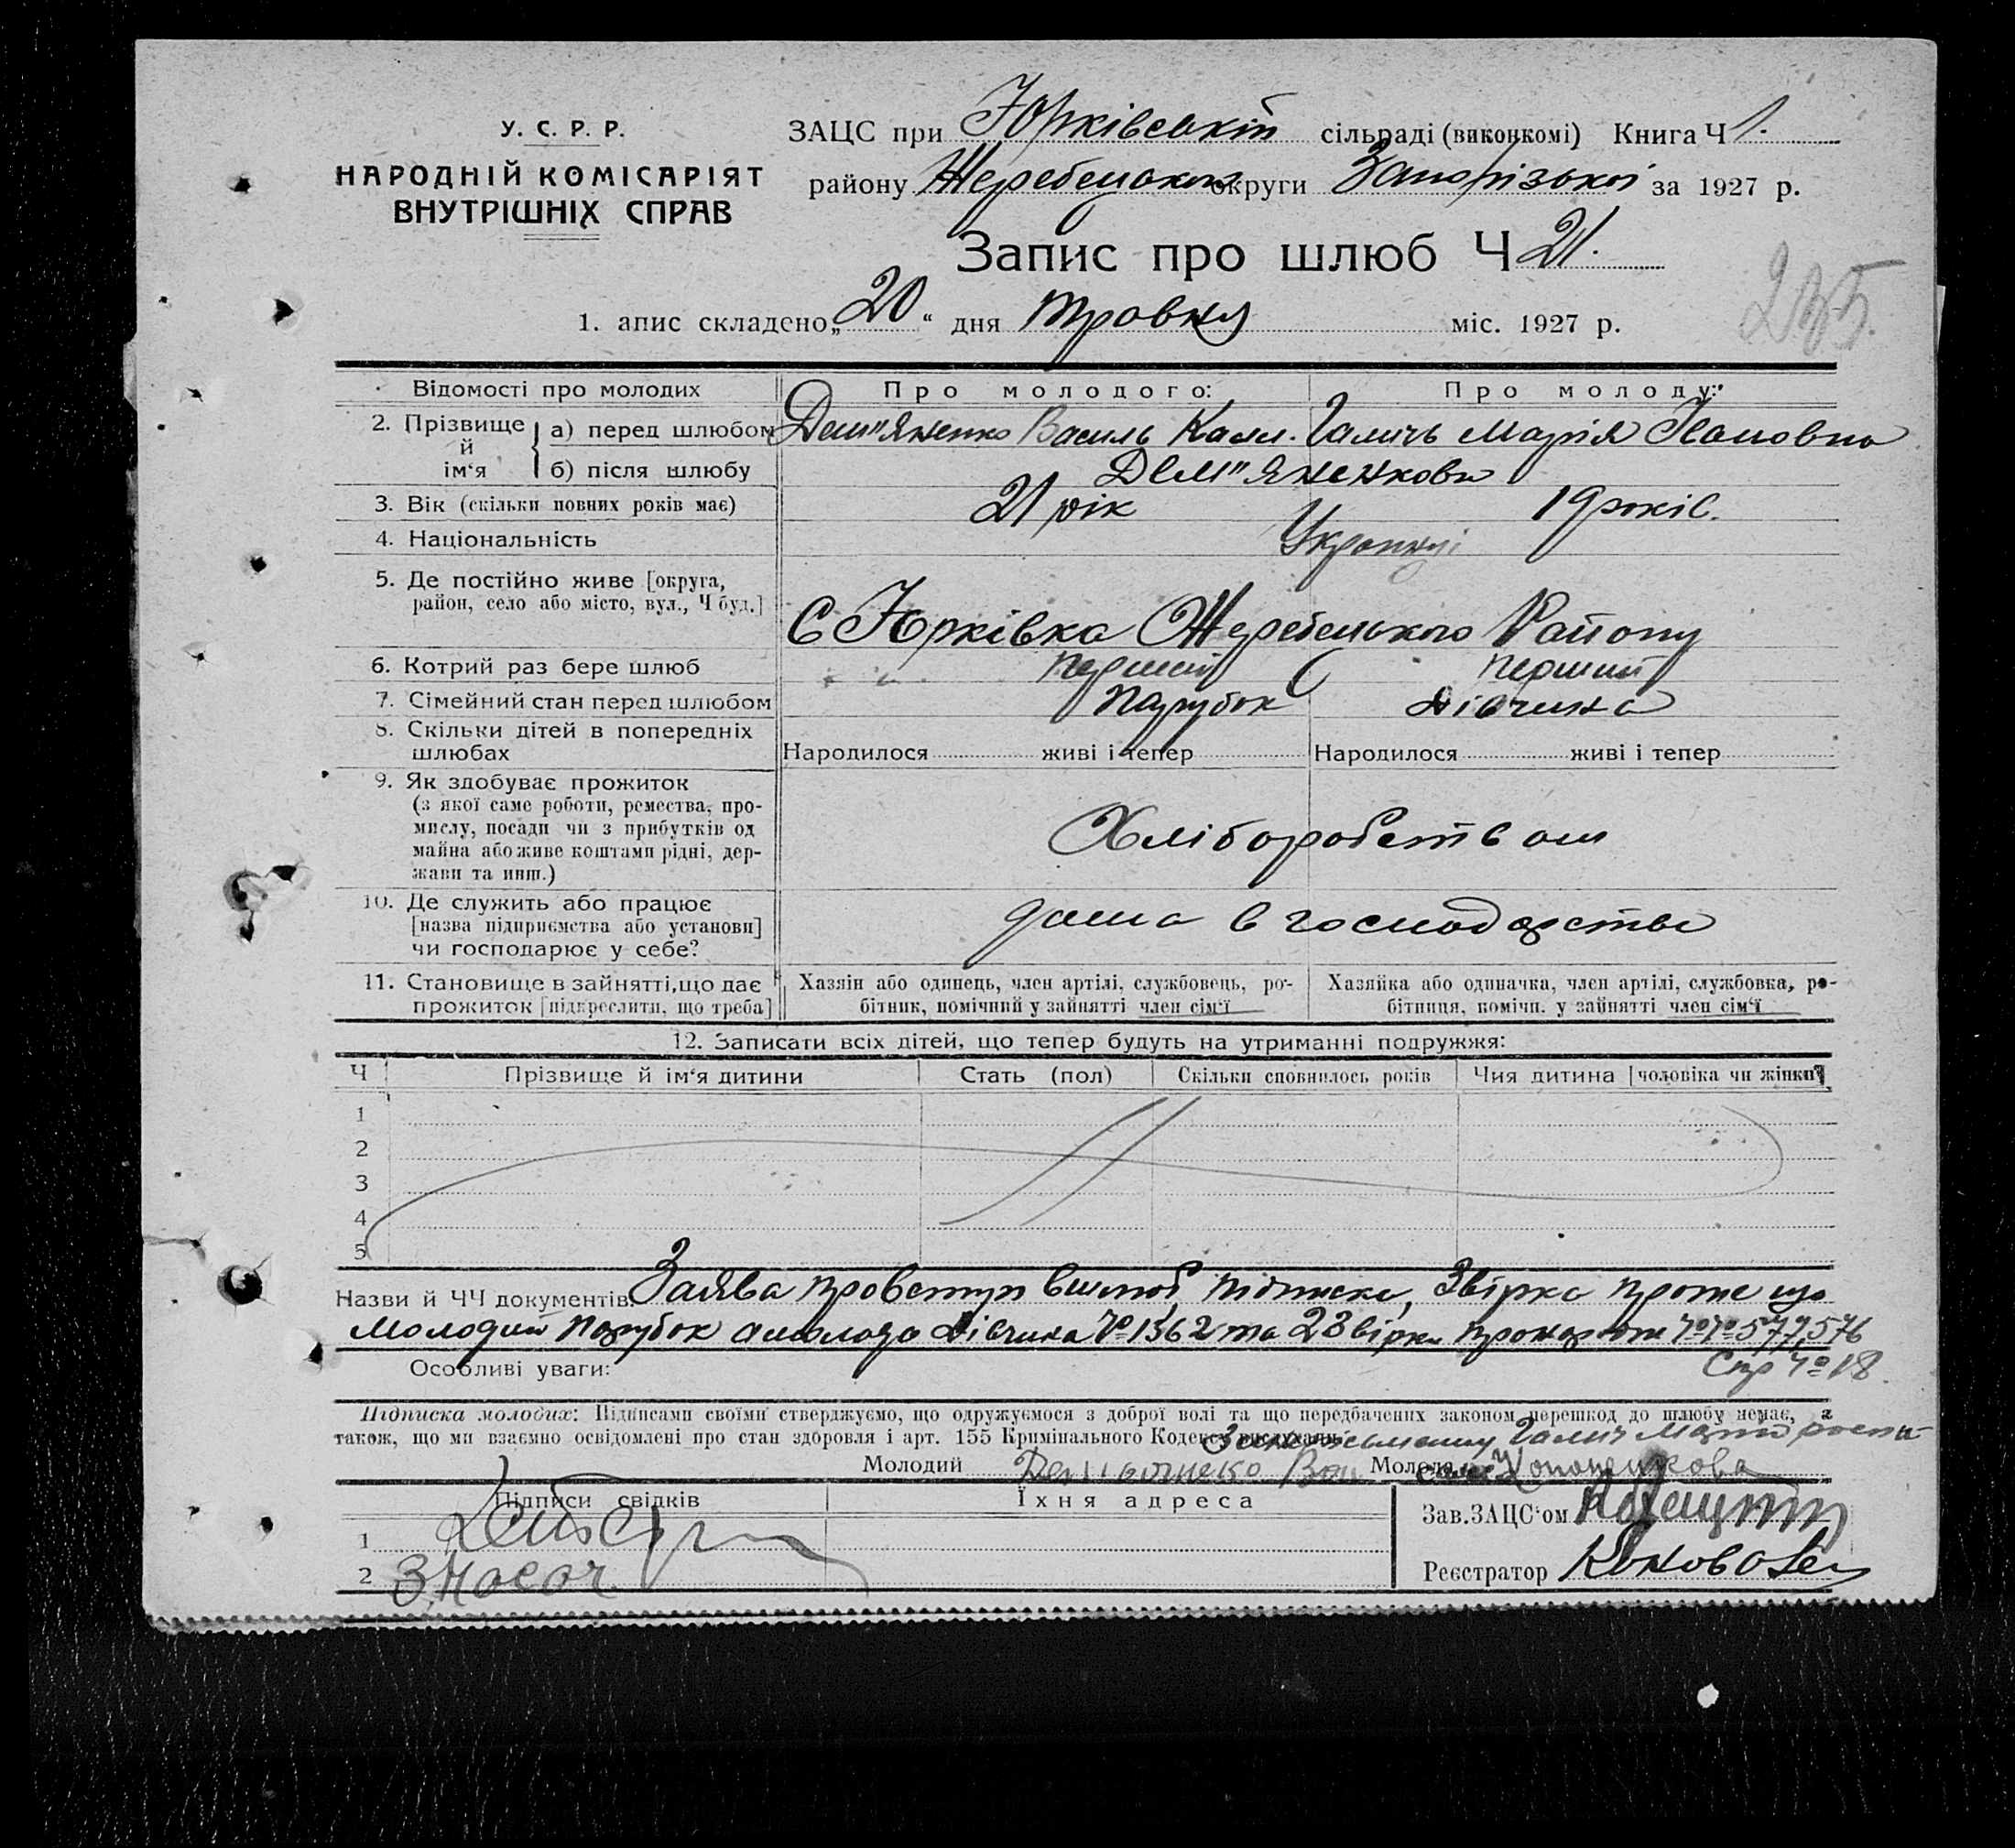 У. С. Р. Р.
НАРОДНІЙ КОМІСАРІЯТ
ВНУТРІШНІХ СПРАВ
ЗАЦС при Юрківській сільраді (виконкомі) Книга Ч 1.
району Жеребецького округи Запорізької за 1927 р.
Запис про шлюб Ч 21.
235.
1. апис складено „20“ дня травня міс. 1927 р.
Відомості про молодих Про молодого: Про молоду:
2. Прізвище й ім‘я а) перед шлюбом Дем"яненко Василь Галичь Марія
б) після шлюбу Дем"яненкови
3. Вік (скільки повних років має) 21 рік 19 років.
4. Національність Українці
5. Де постійно живе [округа,
район, село або місто, вул., Ч буд.]
С Юрківка Жеребецького Району
6. Котрий раз бере шлюб перший перший
7. Сімейний стан перед шлюбом парубок дівчина
8. Скільки дітей в попередніх
шлюбах Народилося живі і тепер Народилося живі і тепер
9. Як здобуває прожиток
(з якої саме роботи, ремества, про-
мислу, посади чи з прибутків од
майна або живе коштами рідні, дер-
жави та инш.)
Хліборобством
10. Де служить або працює
[назва підприємства або установи]
чи господарює у себе?
дома в господарстві
11. Становище в зайнятті, що дає
прожиток [підкреслити, що треба]
Хазяїн або одинець, член артілі, службовець, ро-
бітник, помічний у зайнятті член сім‘ї
Хазяйка або одиначка, член артілі, службовка, ро-
бітниця, поміч. у зайнятті член сім‘ї
12. Записати всіх дітей, що тепер будуть на утриманні подружжя:
Ч Прізвище й ім‘я дитини Стать (пол) Скільки сповнилось років Чия дитина [чоловіка чи жінки]
1
2
3
4
5
Назви й ЧЧ документів: Заява провступ вшлюб, підписка, Звірка проте що
молодий парубок амолода дівчина № 1362 та 2 Звірки №№ 577, 576
Особливі уваги: Стр № 18.
Підписка молодих: Підписами своїми стверджуємо, що одружуємося з доброї волі та що передбачених законом перешкод до шлюбу немає, а
також, що ми взаємно освідомлені про стан здоровля і арт. 155 Кримінального Кодексу
Галич
Молодий Молода
Підписи свідків Їхня адреса Зав. ЗАЦС‘ом
1
2 З. Носач Реєстратор